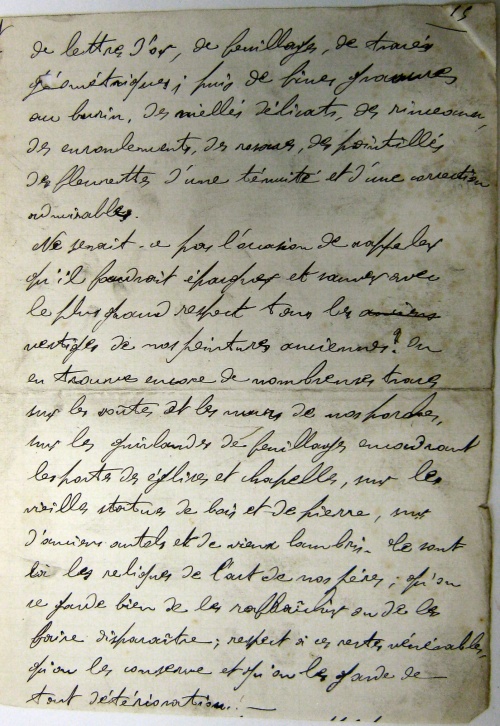 15
de lettres d'or, de feuillages, de tracés
géométriques; puis de fines gravures
au burin, des niellés délicats, des rinceaux,
des enroulements, des rosaces, des pointillés
des fleurettes d'une ténuité et d'une correction
admirables.
Ne serait-ce pas l'occasion de rappeler
qu'il faudrait épargner et sauver avec
le plus grand respect tous les anciens
vestiges de nos peintures anciennes? On
en trouve encore de nombreuses traces
sur les voûtes et les murs de nos porches,
sur les guirlandes de feuillages encadrant
les portes des églises et chapelles, sur les
vieilles statues de bois et de pierre, sur
d'anciens autels et de vieux lambris. Ce sont
là les reliques de l'art de nos pères; qu'on
se garde bien de les rafraîchir ou de les
faire disparaître; respect à ces restes vénérables,
qu'on les conserve et qu'on les garde de
tout détérioration! —